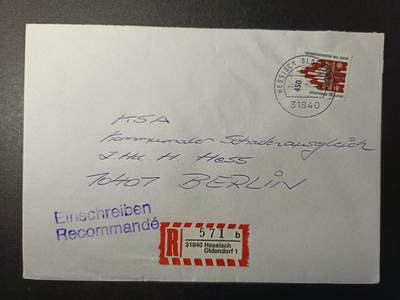 HESSISCH
450
31840
KSA
Kommunaler Schadenausgleich
z.Hd. H. Hess
10407 BERLIN
Einschreiben
Recommandé
R
571 b
31840 Hessisch
Oldendorf 1